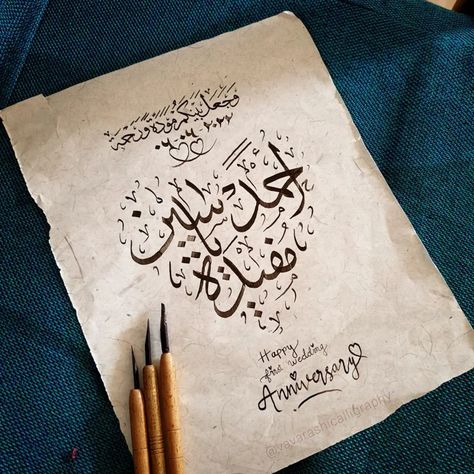 وجعل بينكم مودة ورحمة
٠٦.٠٦.٢٠٢٢
أحمد ياسين
مفيدة
Happy
first wedding
Anniversary
@vavarashicalligraphy